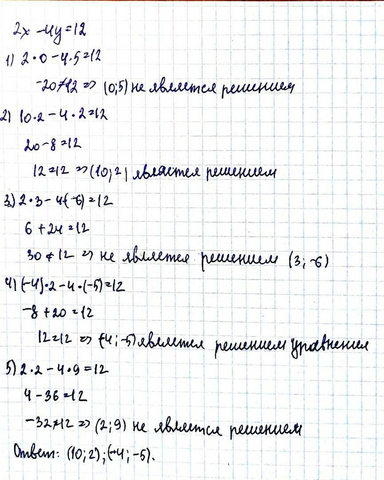 2x - 4y = 12
1) 2·0 - 4·5 = 12
-20 ≠ 12 => (0; 5) не является решением
2) 10·2 - 4·2 = 12
20 - 8 = 12
12 = 12 => (10; 2) является решением
3) 2·3 - 4(-6) = 12
6 + 24 = 12
30 ≠ 12 => не является решением (3; -6)
4) (-4)·2 - 4·(-5) = 12
-8 + 20 = 12
12 = 12 => (-4; -5) является решением уравнения
5) 2·2 - 4·9 = 12
4 - 36 = 12
-32 ≠ 12 => (2; 9) не является решением
Ответ: (10; 2); (-4; -5).